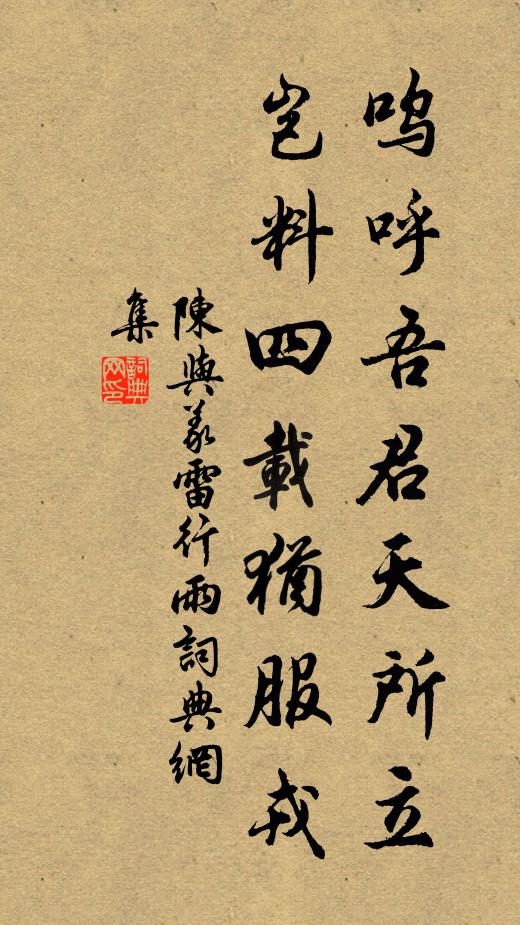 嗚呼吾君天所立
豈料四載猶服戎
陳與義雷雨行詞典網
集
詞典
网印